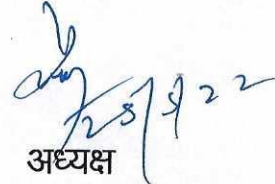 25/5/22
अध्यक्ष